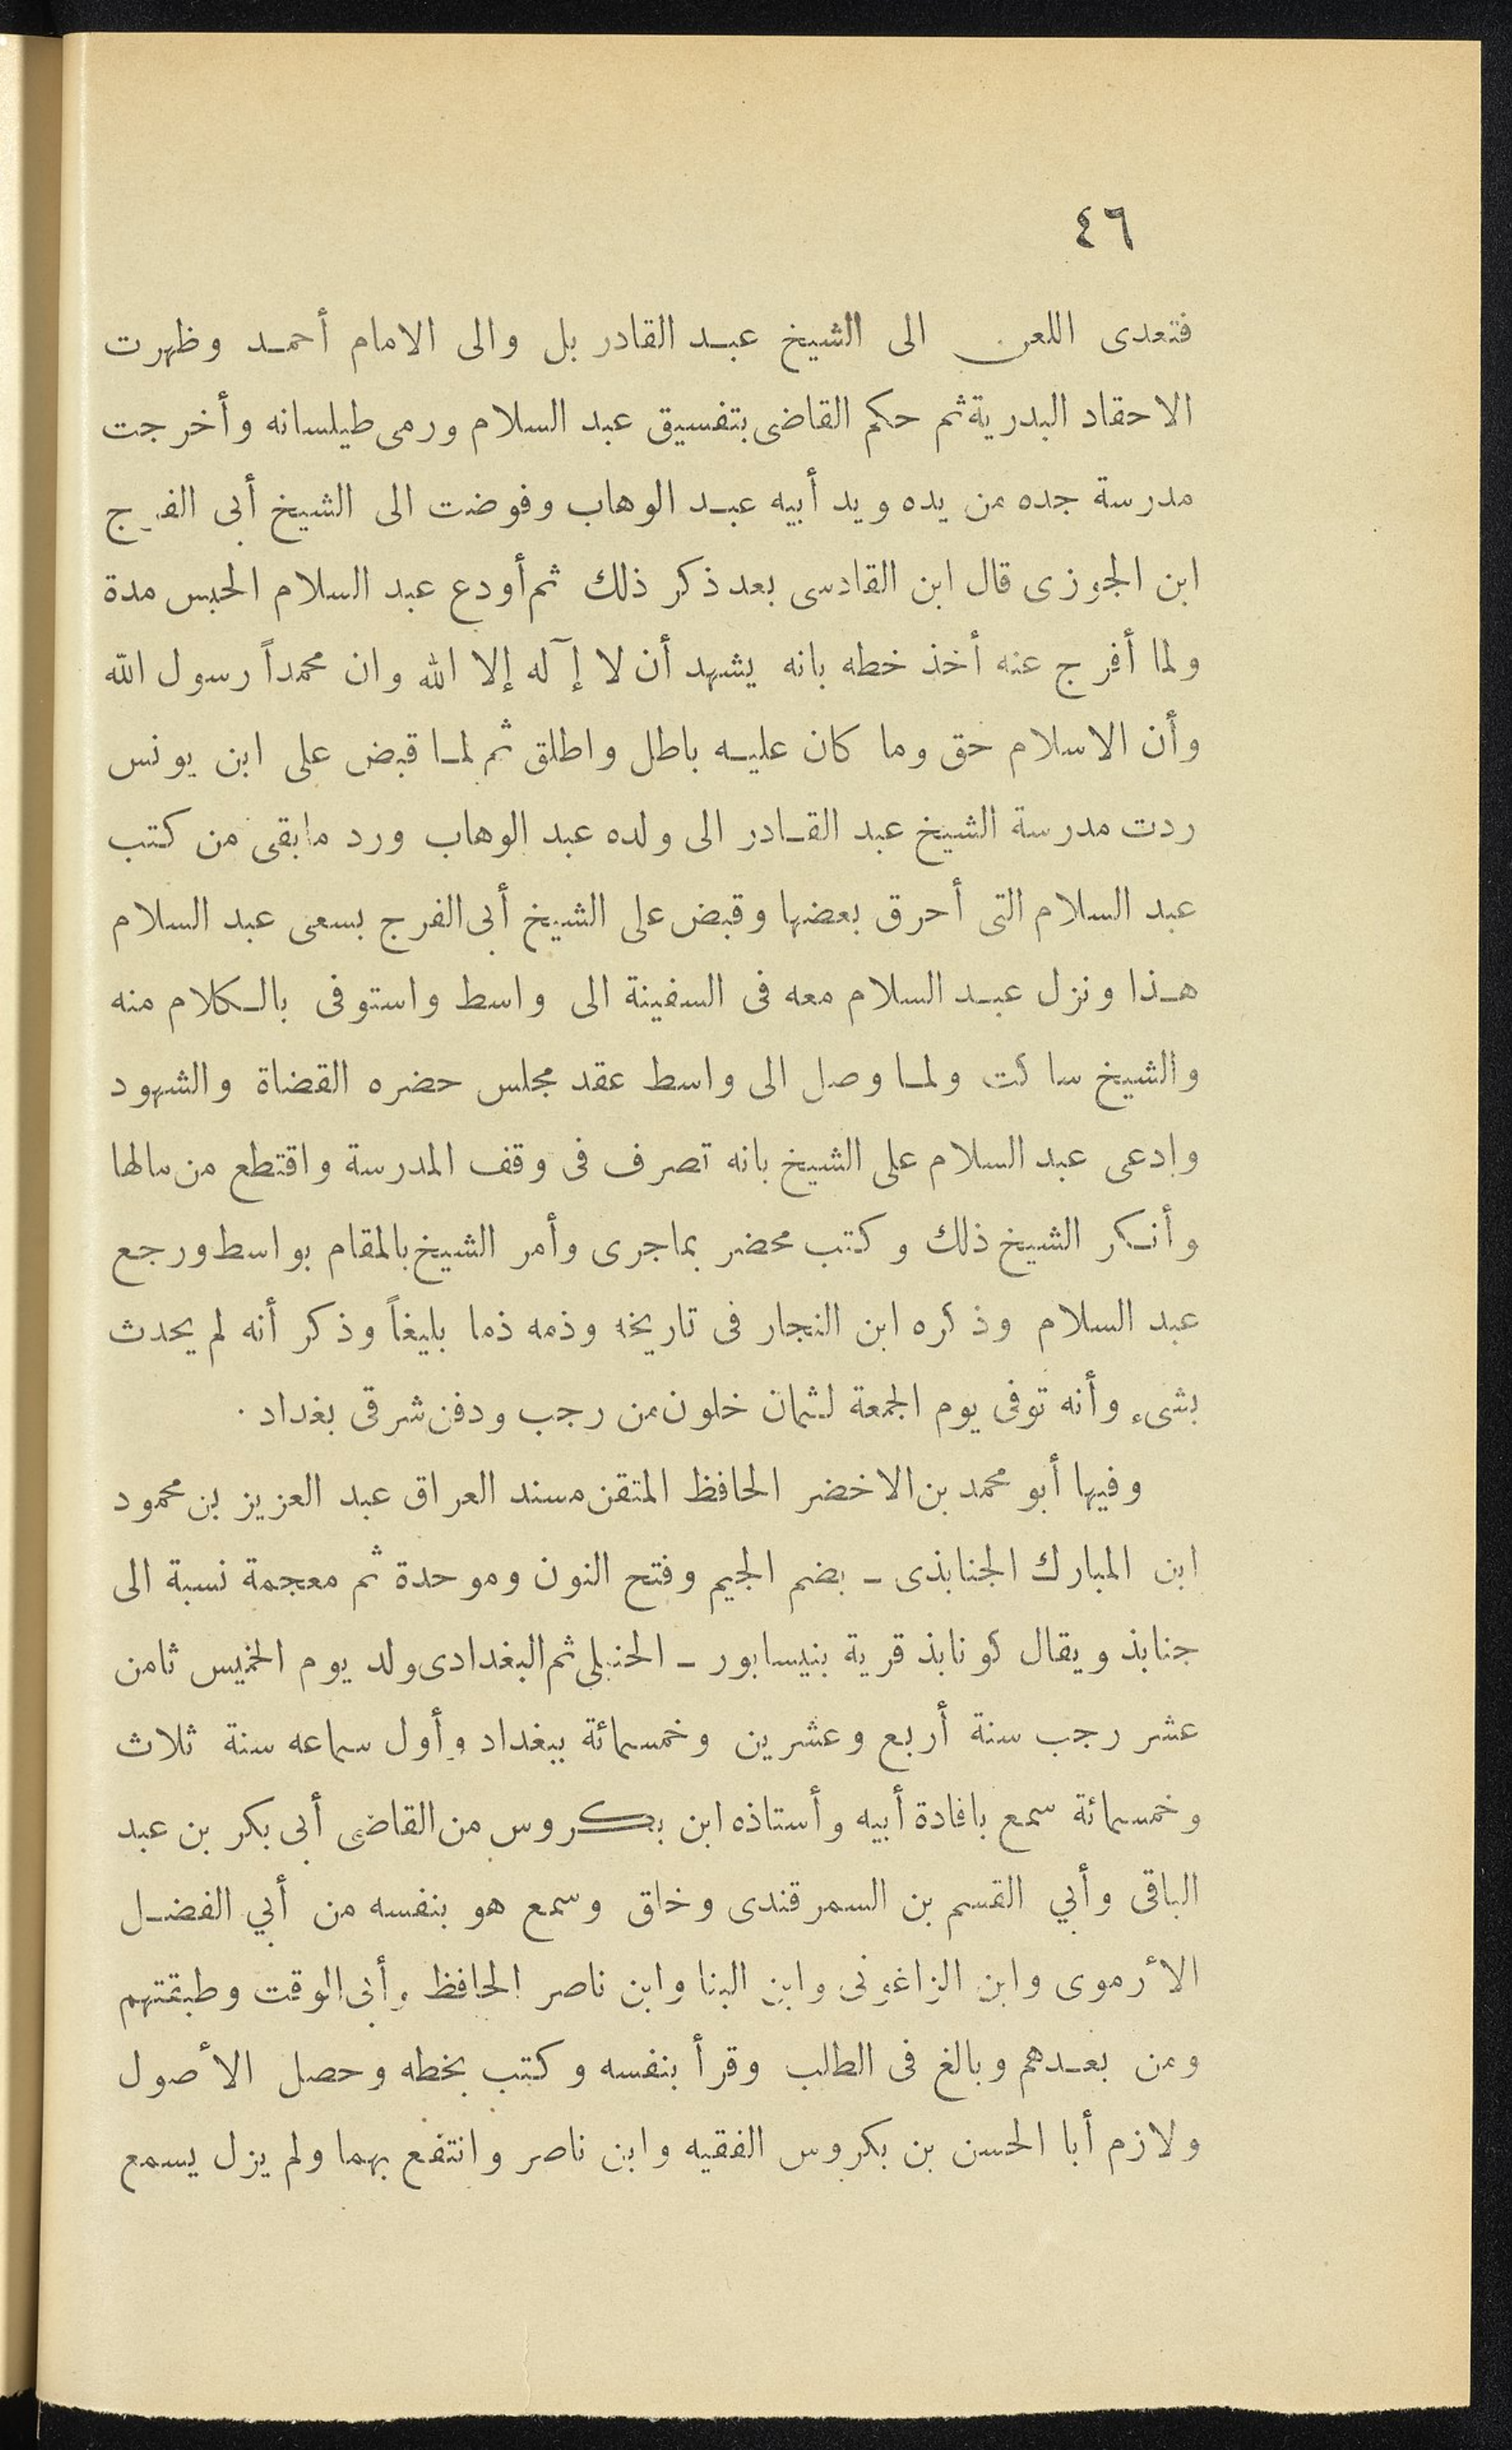 ٤٦
فتعدى اللعن الى الشيخ عبد القادر بل والى الامام أحمد وظهرت
الاحقاد البدرية ثم حكم القاضى بتفسيق عبد السلام ورمى طيلسانه وأخرجت
مدرسة جده من يده ويد أبيه عبد الوهاب وفوضت الى الشيخ أبى الفرج
ابن الجوزى قال ابن القادسى بعد ذكر ذلك ثم أودع عبد السلام الحبس مدة
ولما أفرج عنه أخذ خطه بانه يشهد أن لا إآله إلا الله وان محمداً رسول الله
وأن الاسلام حق وما كان عليه باطل واطلق ثم لما قبض على ابن يونس
ردت مدرسة الشيخ عبد القادر الى ولده عبد الوهاب ورد مابقى من كتب
عبد السلام التى أحرق بعضها وقبض على الشيخ أبى الفرج بسعى عبد السلام
هذا ونزل عبد السلام معه فى السفينة الى واسط واستوفى بالكلام منه
والشيخ ساكت ولما وصل الى واسط عقد مجلس حضره القضاة والشهود
وادعى عبد السلام على الشيخ بانه تصرف فى وقف المدرسة واقتطع من مالها
وأنكر الشيخ ذلك وكتب محضر بماجرى وأمر الشيخ بالمقام بواسط ورجع
عبد السلام وذكره ابن النجار فى تاريخه وذمه ذما بليغاً وذكر أنه لم يحدث
بشىء وأنه توفى يوم الجمعة لثمان خلون من رجب ودفن شرقى بغداد .
وفيها أبو محمد بن الاخضر الحافظ المتقن مسند العراق عبد العزيز بن محمود
ابن المبارك الجنابذى ـ بضم الجيم وفتح النون وموحدة ثم معجمة نسبة الى
جنابذ ويقال كونابذ قرية بنيسابور ـ الحنبلى ثم البغدادى ولد يوم الخميس ثامن
عشر رجب سنة أربع وعشرين وخمسمائة ببغداد وأول سماعه سنة ثلاث
وخمسمائة سمع بافادة أبيه وأستاذه ابن بكروس من القاضى أبى بكر بن عبد
الباقى وأبي القسم بن السمرقندى وخلق وسمع هو بنفسه من أبي الفضل
الأرموى وابن الزاغونى وابن البنا وابن ناصر الحافظ وأبى الوقت وطبقتهم
ومن بعدهم وبالغ فى الطلب وقرأ بنفسه وكتب بخطه وحصل الأصول
ولازم أبا الحسن بن بكروس الفقيه وابن ناصر وانتفع بهما ولم يزل يسمع